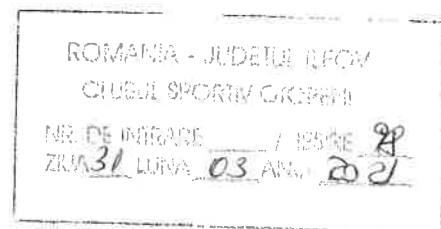 ROMANIA - JUDETUL ILFOV
CLUBUL SPORTIV OTOPENI
NR. DE INTRARE / IESIRE
ZIUA 31 LUNA 03 ANUL 2021